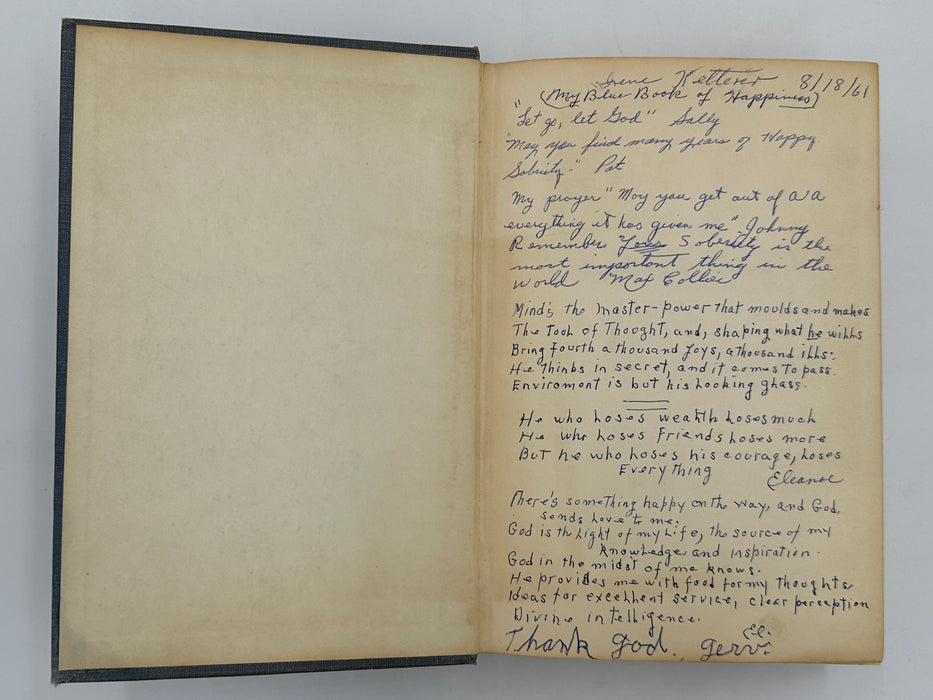 Irene Ketterer 8/18/61
(My Blue Book of Happiness)
"Let go, let God" Sally
"May you find many years of Happy
Sobriety." Pat
My prayer "May you get out of AA
everything it has given me". Johnny
Remember Your Soberity is the
most important thing in the
world Max Collier
Mind's the master-power that moulds and makes
The Tool of Thought, and, shaping what he wills
Bring fourth a thousand Joys, a thousand ills:
He thinks in secret, and it comes to pass.
Enviroment is but his Looking glass.
He who Loses wealth Loses much
He who Loses Friends Loses more
But he who Loses his courage, Loses
Everything
Eleanor
There's something happy on the way, and God,
sends Love to me.
God is the Light of my Life, the source of my
Knowledge and inspiration.
God in the midst of me knows.
He provides me with food for my thoughts
Ideas for excellent service, clear perception
Divine intelligence.
El.
Thank God. Gerv.